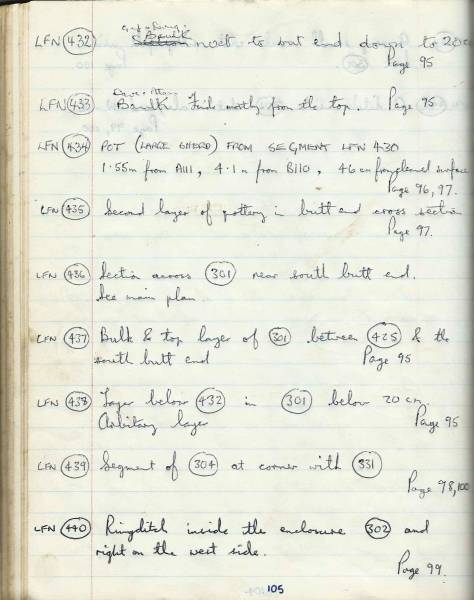 LFN 432 Baulk next to butt end down to 20cm
Page 95
LFN 433 Baulk Finds mostly from the top. Page 95
LFN 434 POT (LARGE SHERD) FROM SEGMENT LFN 430
1.55m from A111, 4.1m from B110, 46cm from cleaned surface
Page 96, 97.
LFN 435 Second layer of pottery in butt end cross section
Page 97.
LFN 436 Section across 301 near south butt end.
See main plan.
LFN 437 Bulk & top layer of 301 between 425 & the
south butt end Page 95
LFN 438 Layer below 432 in 301 below 20cm.
Arbitary layer Page 95
LFN 439 Segment of 304 at corner with 331
Page 98, 100
LFN 440 Ringditch inside the enclosure 302 and
right on the west side.
Page 99.
105